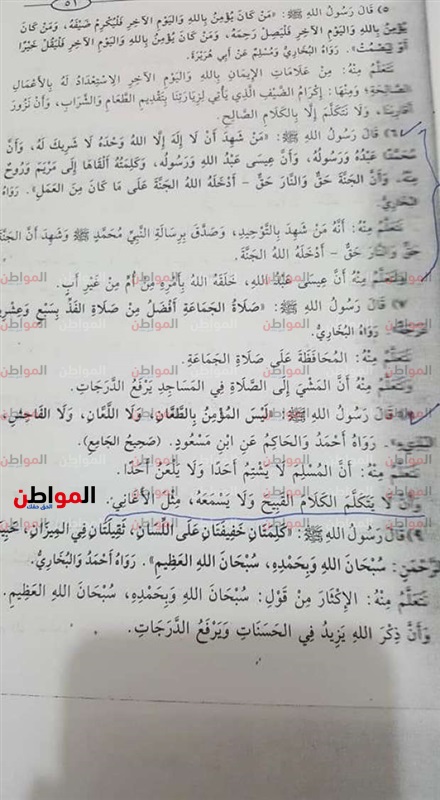 ٥١
٥) قَالَ رَسُولُ اللهِ ﷺ: «مَنْ كَانَ يُؤْمِنُ بِاللهِ وَاليَوْمِ الآخِرِ فَلْيُكْرِمْ ضَيْفَهُ، وَمَنْ كَانَ
يُؤْمِنُ بِاللهِ وَاليَوْمِ الآخِرِ فَلْيَصِلْ رَحِمَهُ، وَمَنْ كَانَ يُؤْمِنُ بِاللهِ وَاليَوْمِ الآخِرِ فَلْيَقُلْ خَيْرًا
أَوْ لِيَصْمُتْ». رَوَاهُ البُخَارِيُّ وَمُسْلِمٌ عَنْ أَبِي هُرَيْرَةَ.
نَتَعَلَّمُ مِنْهُ: مِنْ عَلَامَاتِ الإِيمَانِ بِاللهِ وَاليَوْمِ الآخِرِ الاِسْتِعْدَادُ لَهُ بِالأَعْمَالِ
الصَّالِحَةِ؛ وَمِنْهَا: إِكْرَامُ الضَّيْفِ الَّذِي يَأْتِي لِزِيَارَتِنَا بِتَقْدِيمِ الطَّعَامِ وَالشَّرَابِ، وَأَنْ نَزُورَ
أَقَارِبَنَا، وَلَا نَتَكَلَّمَ إِلَّا بِالكَلَامِ الصَّالِحِ.
٦) قَالَ رَسُولُ اللهِ ﷺ: «مَنْ شَهِدَ أَنْ لَا إِلَهَ إِلَّا اللهُ وَحْدَهُ لَا شَرِيكَ لَهُ، وَأَنَّ
مُحَمَّدًا عَبْدُهُ وَرَسُولُهُ، وَأَنَّ عِيسَى عَبْدُ اللهِ وَرَسُولُهُ، وَكَلِمَتُهُ أَلْقَاهَا إِلَى مَرْيَمَ وَرُوحٌ
مِنْهُ، وَأَنَّ الجَنَّةَ حَقٌّ وَالنَّارَ حَقٌّ – أَدْخَلَهُ اللهُ الجَنَّةَ عَلَى مَا كَانَ مِنَ العَمَلِ». رَوَاهُ
البُخَارِيُّ.
نَتَعَلَّمُ مِنْهُ: أَنَّهُ مَنْ شَهِدَ بِالتَّوْحِيدِ، وَصَدَّقَ بِرِسَالَةِ النَّبِيِّ مُحَمَّدٍ ﷺ وَشَهِدَ أَنَّ الجَنَّةَ
حَقٌّ وَالنَّارَ حَقٌّ – أَدْخَلَهُ اللهُ الجَنَّةَ.
وَنَتَعَلَّمُ مِنْهُ أَنَّ عِيسَى عَبْدُ اللهِ، خَلَقَهُ اللهُ بِأَمْرِهِ مِنْ أُمٍّ مِنْ غَيْرِ أَبٍ.
٧) قَالَ رَسُولُ اللهِ ﷺ: «صَلَاةُ الجَمَاعَةِ أَفْضَلُ مِنْ صَلَاةِ الفَذِّ بِسَبْعٍ وَعِشْرِينَ
دَرَجَةً». رَوَاهُ البُخَارِيُّ.
نَتَعَلَّمُ مِنْهُ: المُحَافَظَةَ عَلَى صَلَاةِ الجَمَاعَةِ.
وَنَتَعَلَّمُ مِنْهُ أَنَّ المَشْيَ إِلَى الصَّلَاةِ فِي المَسَاجِدِ يَرْفَعُ الدَّرَجَاتِ.
قَالَ رَسُولُ اللهِ ﷺ: «لَيْسَ المُؤْمِنُ بِالطَّعَّانِ، وَلَا اللَّعَّانِ، وَلَا الفَاحِشِ،
البَذِيءِ». رَوَاهُ أَحْمَدُ وَالحَاكِمُ عَنِ ابْنِ مَسْعُودٍ. (صَحِيحُ الجَامِعِ).
نَتَعَلَّمُ مِنْهُ: أَنَّ المُسْلِمَ لَا يَشْتُمُ أَحَدًا وَلَا يَلْعَنُ أَحَدًا.
وَأَنْ لَا يَتَكَلَّمَ الكَلَامَ القَبِيحَ وَلَا يَسْمَعَهُ، مِثْلَ الأَغَانِي.
المواطن
الحق معك
٩) قَالَ رَسُولُ اللهِ ﷺ: «كَلِمَتَانِ خَفِيفَتَانِ عَلَى اللِّسَانِ، ثَقِيلَتَانِ فِي المِيزَانِ،
الرَّحْمَنِ: سُبْحَانَ اللهِ وَبِحَمْدِهِ، سُبْحَانَ اللهِ العَظِيمِ». رَوَاهُ أَحْمَدُ وَالبُخَارِيُّ.
نَتَعَلَّمُ مِنْهُ: الإِكْثَارَ مِنْ قَوْلِ: سُبْحَانَ اللهِ وَبِحَمْدِهِ، سُبْحَانَ اللهِ العَظِيمِ.
وَأَنَّ ذِكْرَ اللهِ يَزِيدُ فِي الحَسَنَاتِ وَيَرْفَعُ الدَّرَجَاتِ.